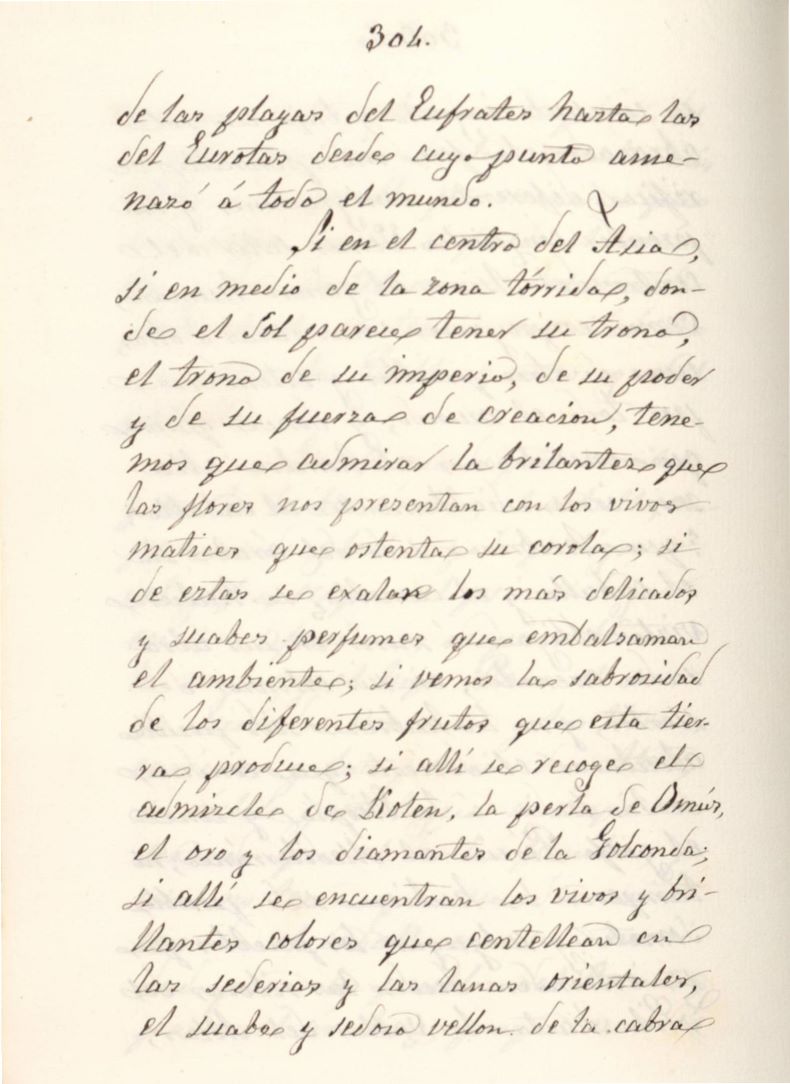 304.
de las playas del Eufrates hasta las
del Eurotas desde cuyo punto ame-
nazó á todo el mundo.
Si en el centro del Asia,
si en medio de la zona tórrida, don-
de el Sol parece tener su trono,
el trono de su imperio, de su poder
y de su fuerza de creacion, tene-
mos que admirar la brilantez que
las flores nos presentan con los vivos
matices que ostenta su corola; si
de estas se exalan los más delicados
y suabes perfumes que embalsaman
el ambiente; si vemos la sabrosidad
de los diferentes frutos que esta tier-
ra produce; si allí se recoge el
admizcle de Koten, la perla de Omúz,
el oro y los diamantes de la Golconda;
si allí se encuentran los vivos y bri-
llantes colores que centellean en
las sederias y las lanas orientales,
el suabe y sedoso vellon de la cabra